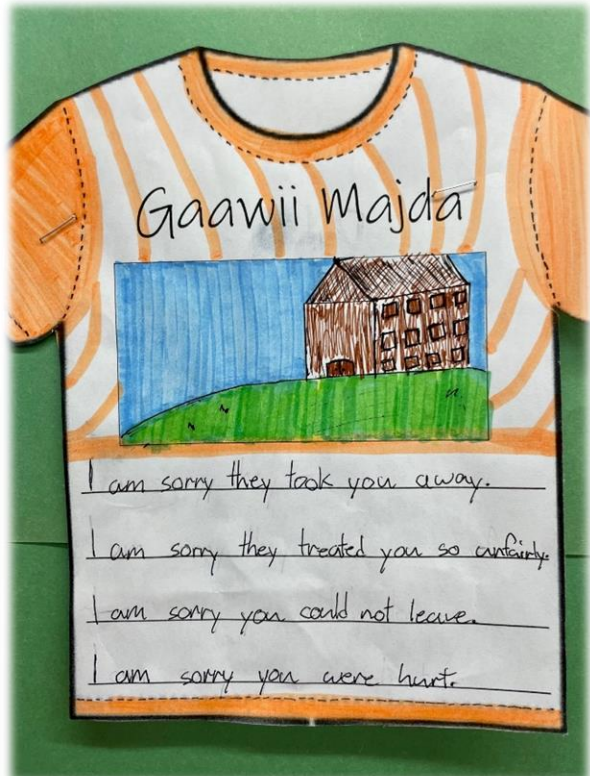 Gaawii Majda
I am sorry they took you away.
I am sorry they treated you so unfairly.
I am sorry you could not leave.
I am sorry you were hurt.